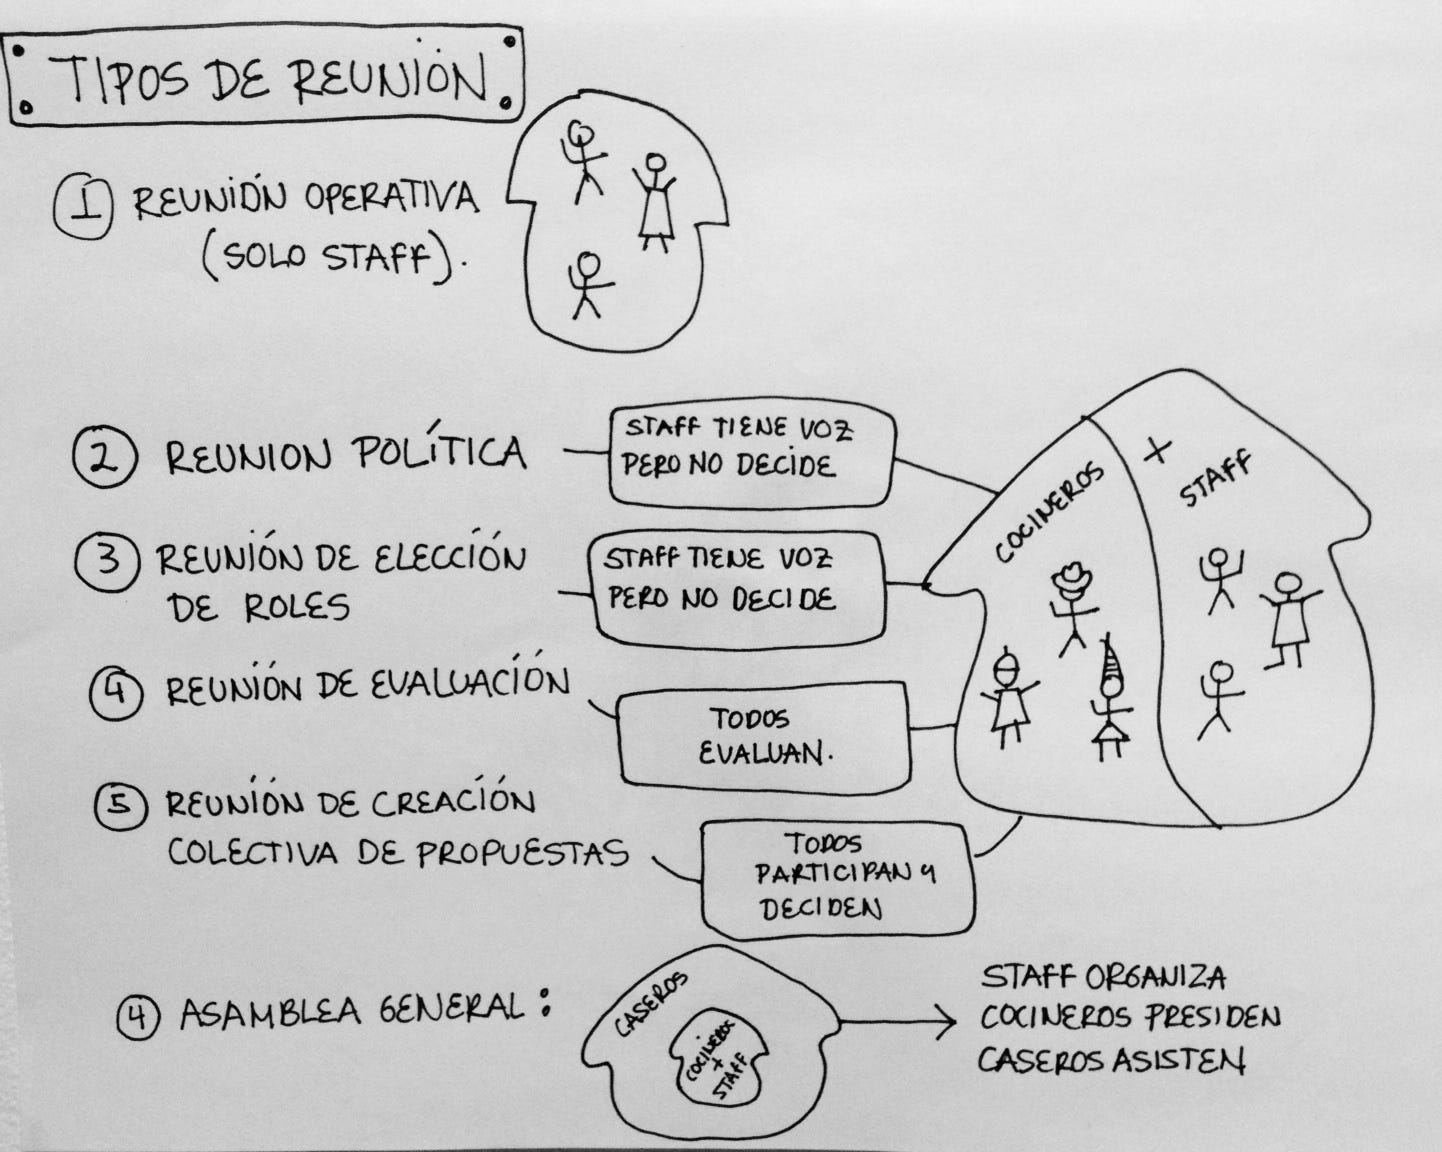 TIPOS DE REUNIÓN
1 REUNIÓN OPERATIVA
(SOLO STAFF).
2 REUNION POLÍTICA
STAFF TIENE VOZ
PERO NO DECIDE
COCINEROS
+
STAFF
3 REUNIÓN DE ELECCIÓN
DE ROLES
STAFF TIENE VOZ
PERO NO DECIDE
4 REUNIÓN DE EVALUACIÓN
TODOS
EVALUAN.
5 REUNIÓN DE CREACIÓN
COLECTIVA DE PROPUESTAS
TODOS
PARTICIPAN Y
DECIDEN
4 ASAMBLEA GENERAL:
CASEROS
COCINEROS
+
STAFF
STAFF ORGANIZA
COCINEROS PRESIDEN
CASEROS ASISTEN